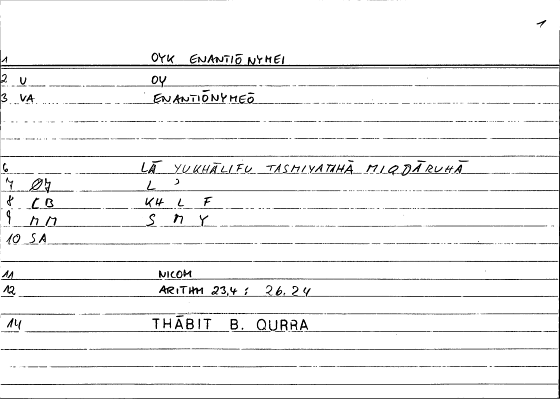 1
1 OYK ENANTIŌNYMEI
2 V OY
3 VA ENANTIŌNYMEŌ
6 LĀ YUKHĀLIFU TASMIYATAHĀ MIQDĀRUHĀ
7 ØØ L ʾ
8 CB KH L F
9 MM S M Y
10 SA
11 NICOM
12 ARITHM 23,4 : 26.24
14 THĀBIT B. QURRA